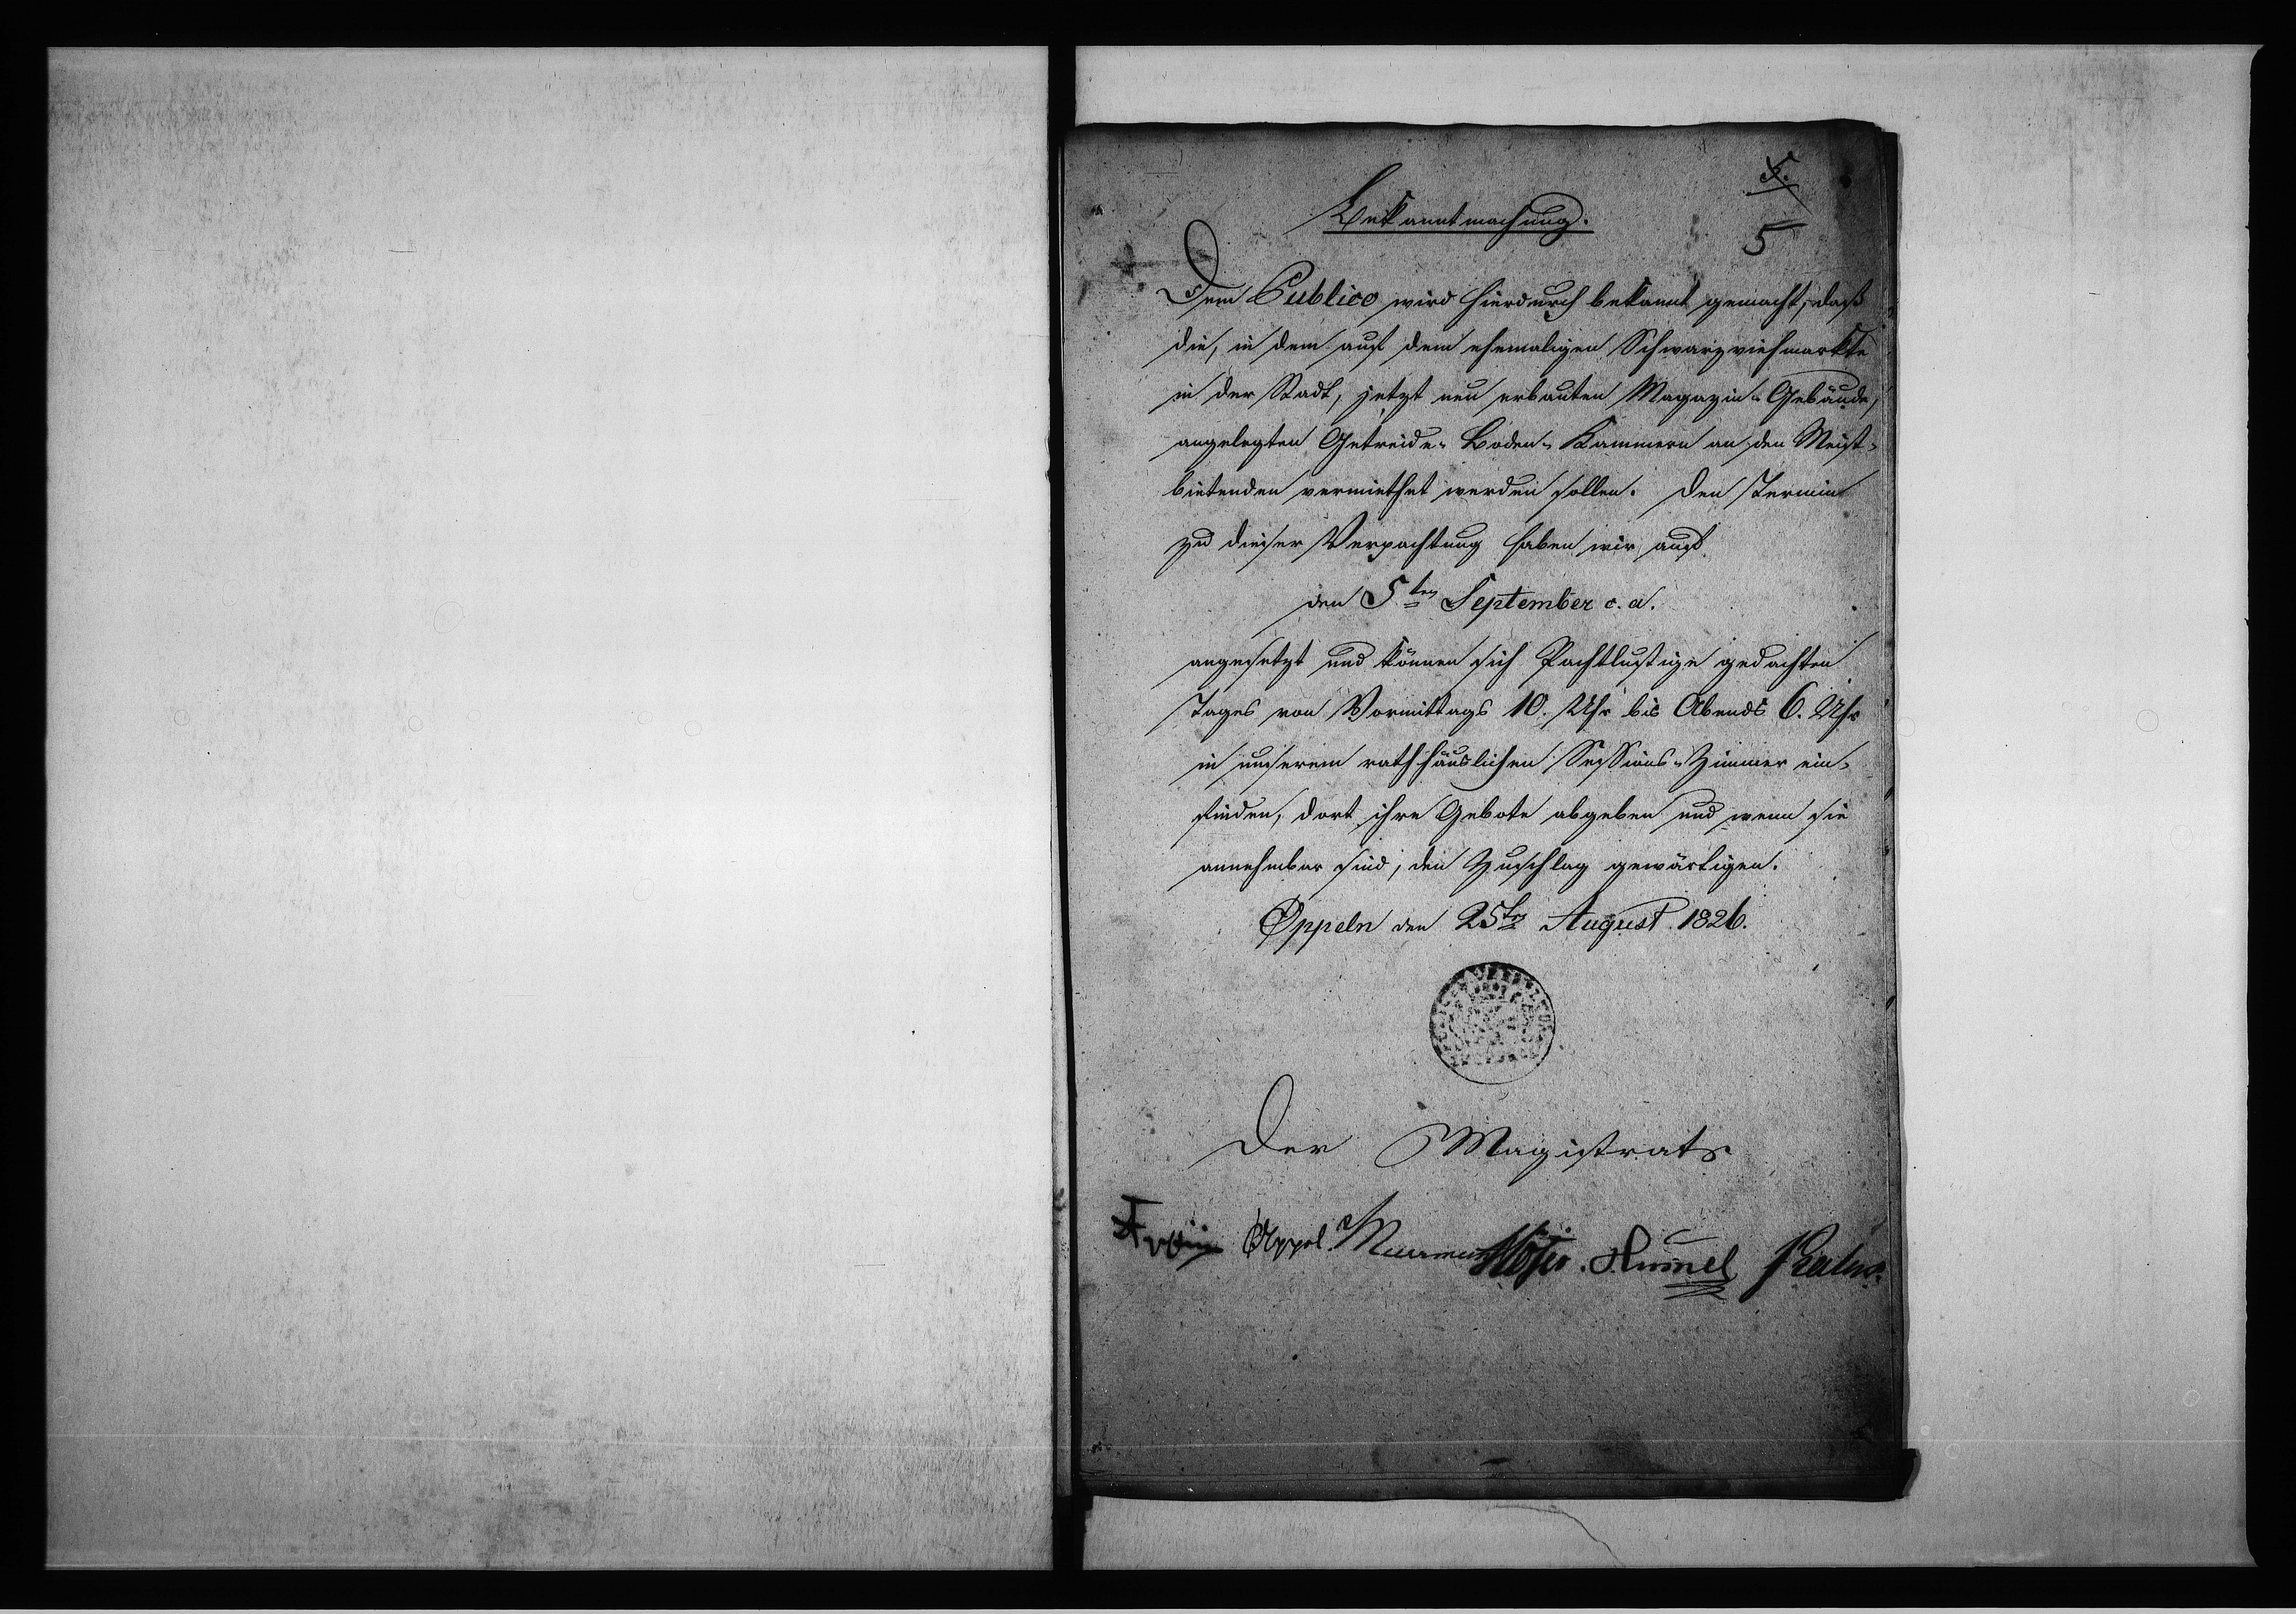 5.
5
Bekanntmachung.
Dem Publico wird hierdurch bekannt gemacht, daß
die, in dem auf dem ehemaligen Schwarzviehmarkte
in der Stadt, jetzt neu erbauten Magazin-Gebäude,
angelegten Getreide-Boden-Kammern an den Meist-
bietenden vermiethet werden sollen. Den Termin
zu dieser Verpachtung haben wir auf
den 5ten September c. a.
angesetzt und können sich Pachtlustige gedachten
Tages von Vormittags 10. Uhr bis Abends 6. Uhr
in unserem rathhäuslichen Sessions-Zimmer ein-
finden, dort ihre Gebote abgeben und wenn sie
annehmbar sind, den Zuschlag gewärtigen.
Oppeln den 25ten August 1826.
Der Magistrat